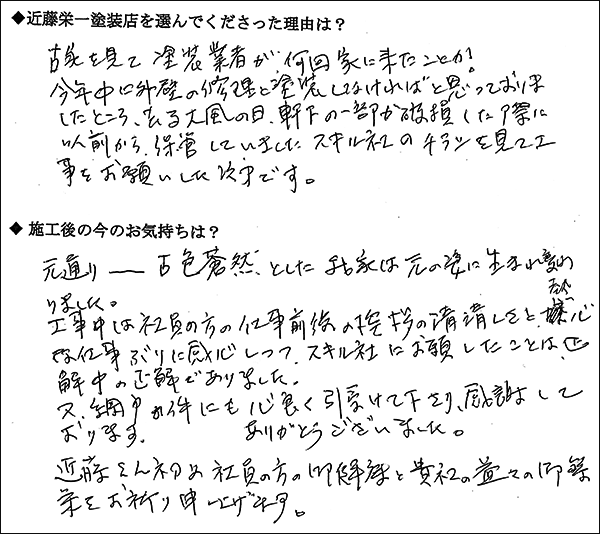 ◆近藤栄一塗装店を選んでくださった理由は？
古家を見て塗装業者が、何回家に来たことか！
今年中に外壁の修理と塗装しなければと思っておりま
したところ、去る大風の日、軒下の一部が破損した際に
以前から、保管していましたスキル社のチラシを見て工
事をお願いした次第です。
◆ 施工後の今のお気持ちは？
元通り ― 古色蒼然、とした我家は元の姿に生まれ変わ
りました。
工事中は社員の方の仕事前後の挨拶の清清しさと、
な仕事ぶりに感心しつつ、スキル社にお願したことは、正
解中の正解でありました。
又、網戸の件にも心良く引受けて下さり、感謝して
おります。 ありがとうございました。
近藤さん初め社員の方の御健康と貴社の益々の御繁
栄をお祈り申上げます。